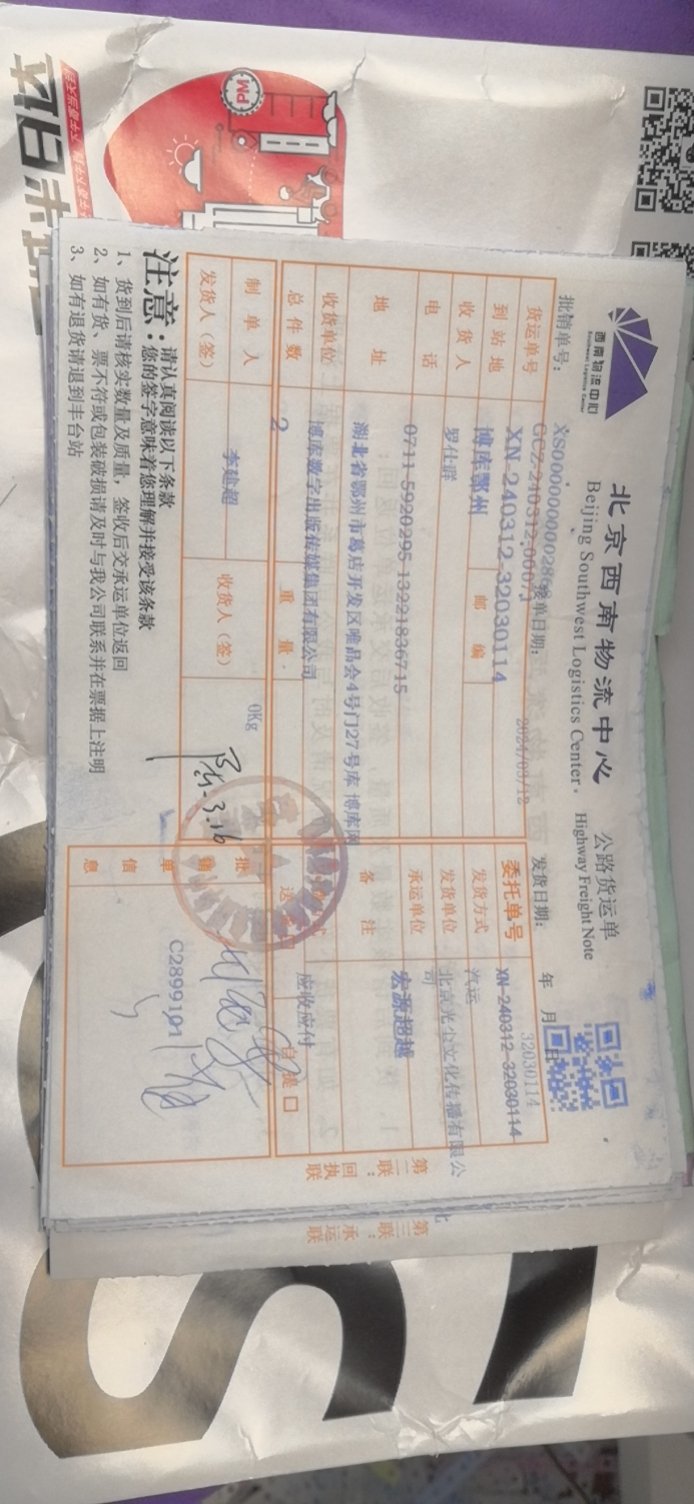 西南物流中心
Southwest Logistics Center
北京西南物流中心 公路货运单
Beijing Southwest Logistics Center. Highway Freight Note
批销单号: 接单日期: 2024/03/12 发货日期: 年 月 日
货运单号 XN-240312-32030114 委托单号 XN-240312-32030114
32030114
到站地 博库鄂州 邮编 发货方式 汽运
收货人 罗仕群 发货单位 北京光尘文化传播有限公司
电话 0711-5920295 13221836715 承运单位 宏源超越
地址 湖北省鄂州市葛店开发区唯品会4号门27号库 博库网 备注
收货单位 博库数字出版传媒集团有限公司 应收应付
总件数 2 重量 0Kg 自提 □
制单人 李建超 收货人(签) 批销单信息 C2899191
发货人(签) 3.16
注意: 请认真阅读以下条款
您的签字意味着您理解并接受该条款
1、货到后请核实数量及质量,签收后交承运单位返回
2、如有货、票不符或包装破损请及时与我公司联系并在票据上注明
3、如有退货请退到丰台站
第二联:回执联
第三联:承运联
PM